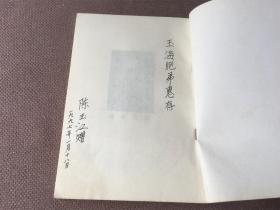 玉海胞弟惠存
陈玉江赠
一九九七年一月十八日